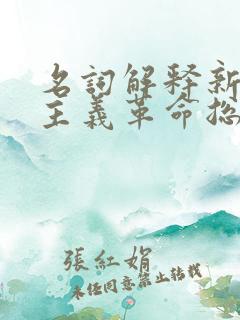 名詞解釋新
主義革命總
張紅娟
未經同意禁止轉載